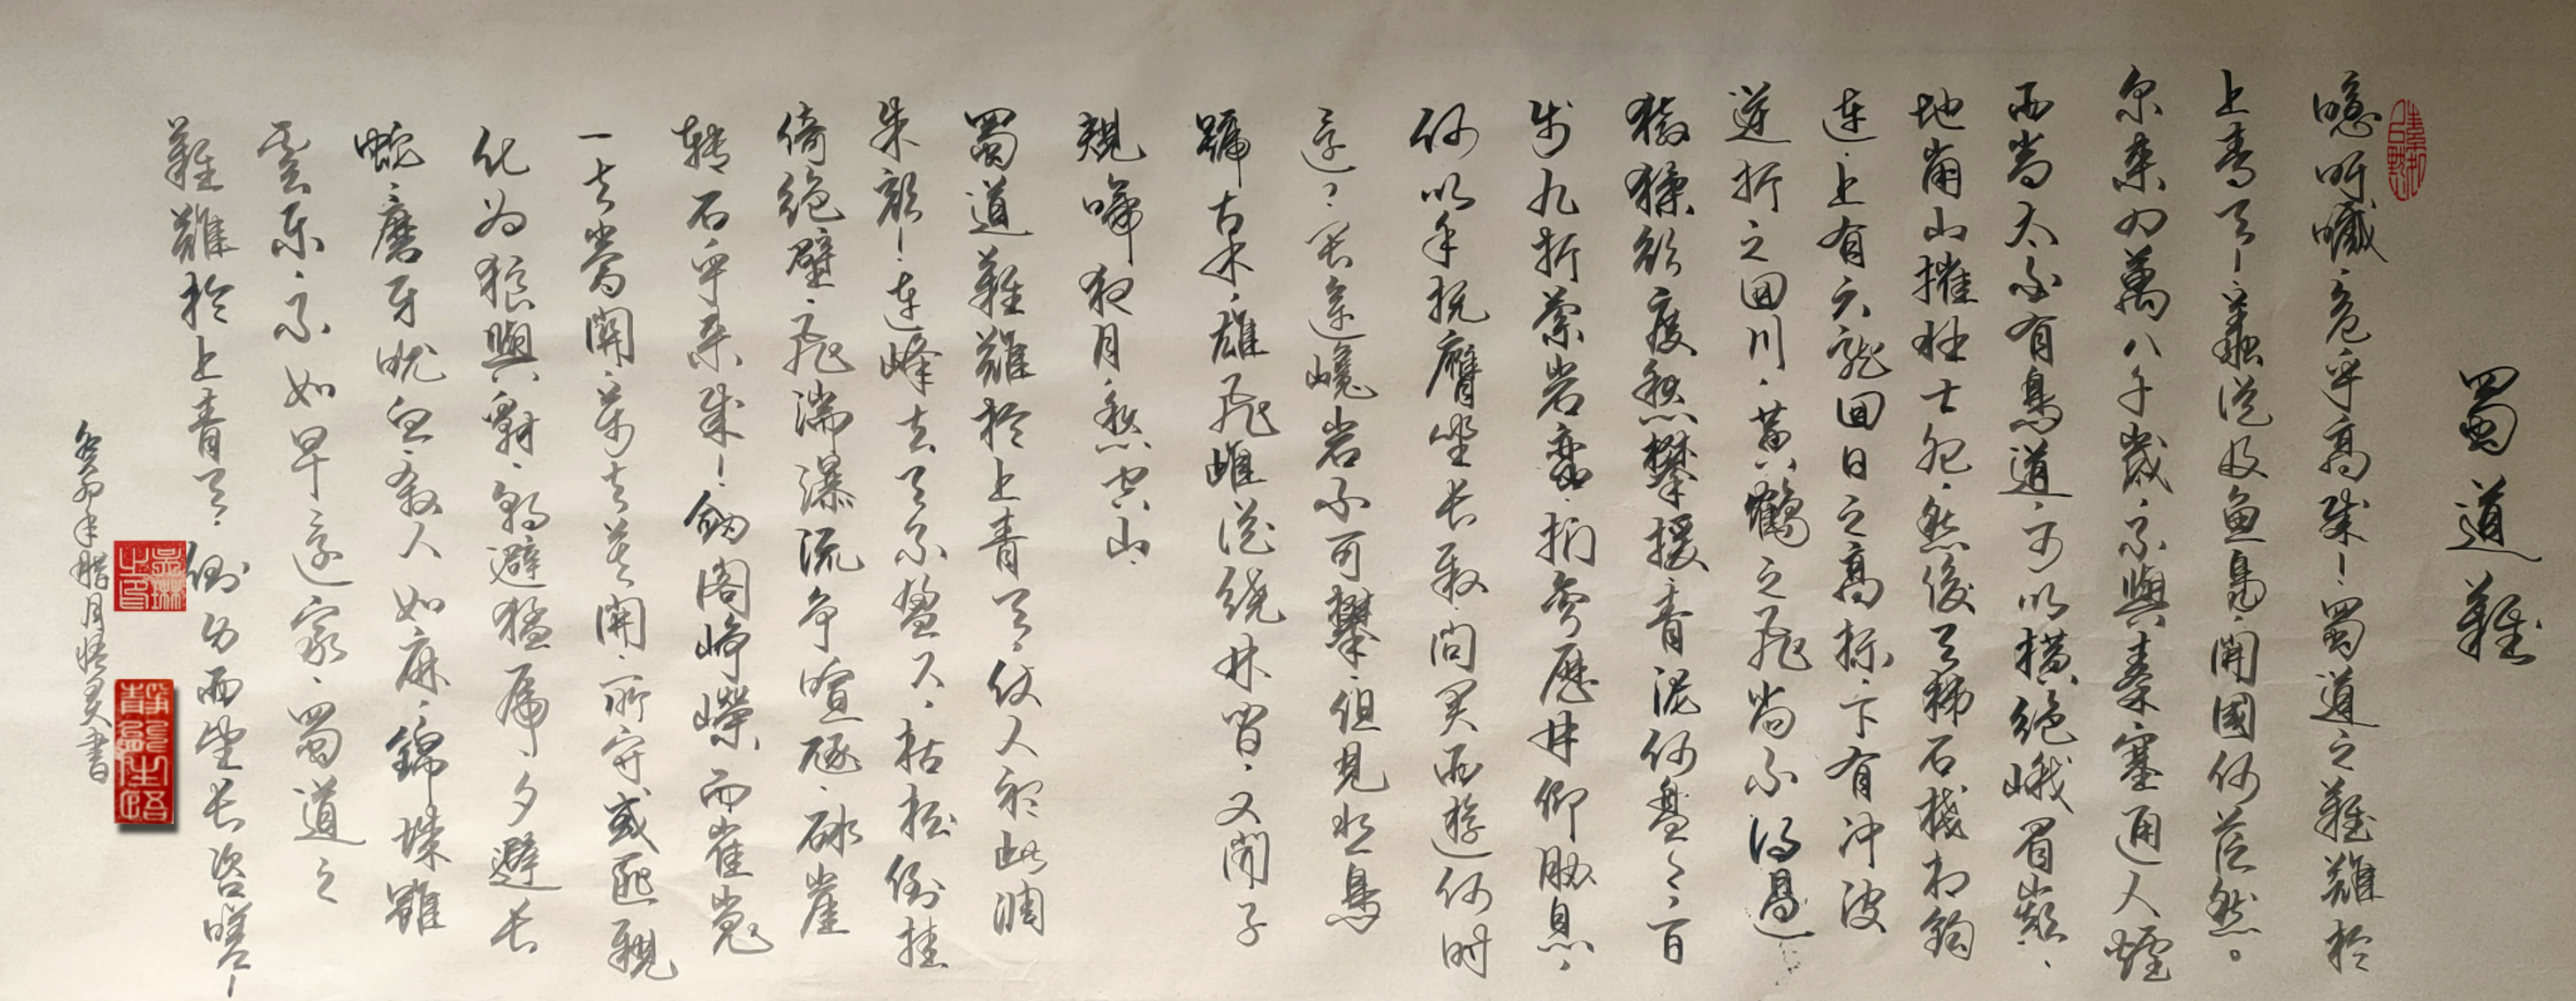 蜀道難
噫吁嚱危乎高哉！蜀道之難難於
上青天！蠶叢及魚鳧開國何茫然。
尔来四萬八千歲不與秦塞通人煙
西當太白有鳥道可以橫絕峨眉巔、
地崩山摧壯士死然後天梯石棧相鉤
連上有六龍回日之高标下有冲波
逆折之回川黃鶴之飛尚不得過
猿猱欲度愁攀援青泥何盤〻百
步九折縈岩巒捫參歷井仰脅息、
以手撫膺坐长歎問君西遊何时
還畏途巉岩不可攀但見悲鳥
號古木雄飛雌從繞林間又聞子
規啼夜月愁空山
蜀道難難於上青天使人聽此凋
朱顏！連峰去天不盈尺枯松倒挂
倚絕壁飛湍瀑流争喧豗砯崖
轉石
一夫當關萬夫莫開所守或匪親
化为狼與豺朝避猛虎夕避长
蛇磨牙吮血殺人如麻錦城雖
雲樂不如早還家蜀道之
難難於上青天側身西望长咨嗟！
癸卯年腊月